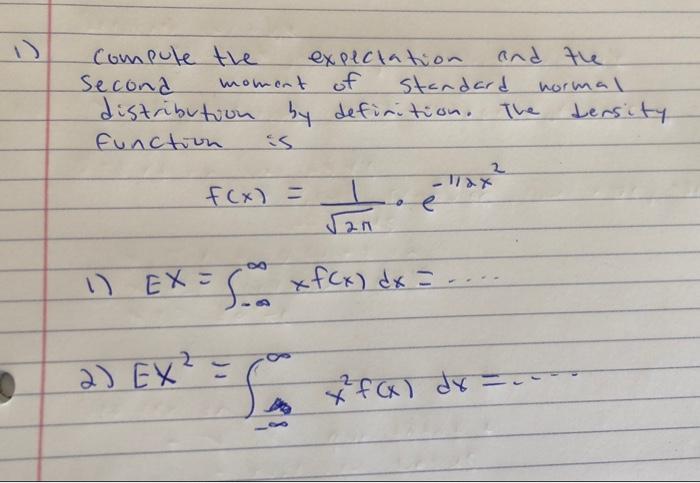 1) Compute the expectation and the
second moment of standard normal
distribution by definition. The density
function is
f(x) = 1/√2π · e^-1/2x^2
1) EX = ∫_-∞^∞ xf(x) dx = ....
2) EX² = ∫_-∞^∞ x²f(x) dx = .....